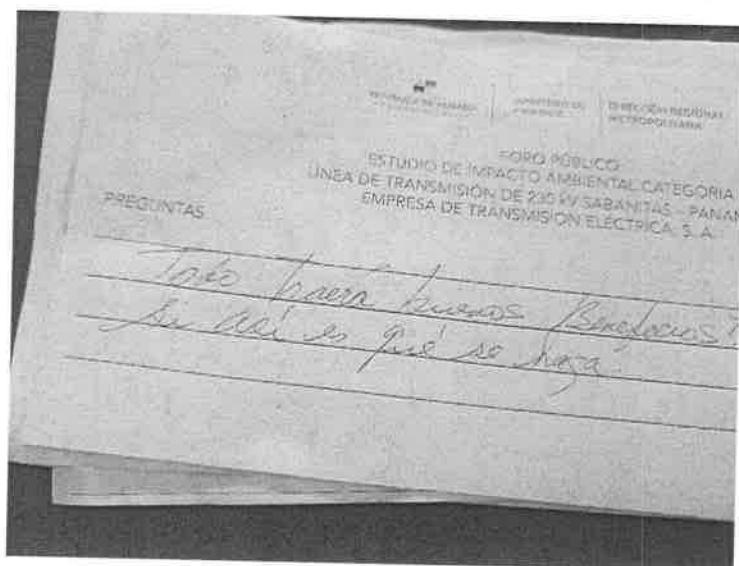 REPÚBLICA DE PANAMÁ
MINISTERIO DE AMBIENTE
DIRECCIÓN REGIONAL METROPOLITANA
FORO PÚBLICO
ESTUDIO DE IMPACTO AMBIENTAL CATEGORÍA
LÍNEA DE TRANSMISIÓN DE 230 kV SABANITAS - PANAM
EMPRESA DE TRANSMISIÓN ELÉCTRICA, S. A.
PREGUNTAS
buenos Beneficios
Si así es qué se haga